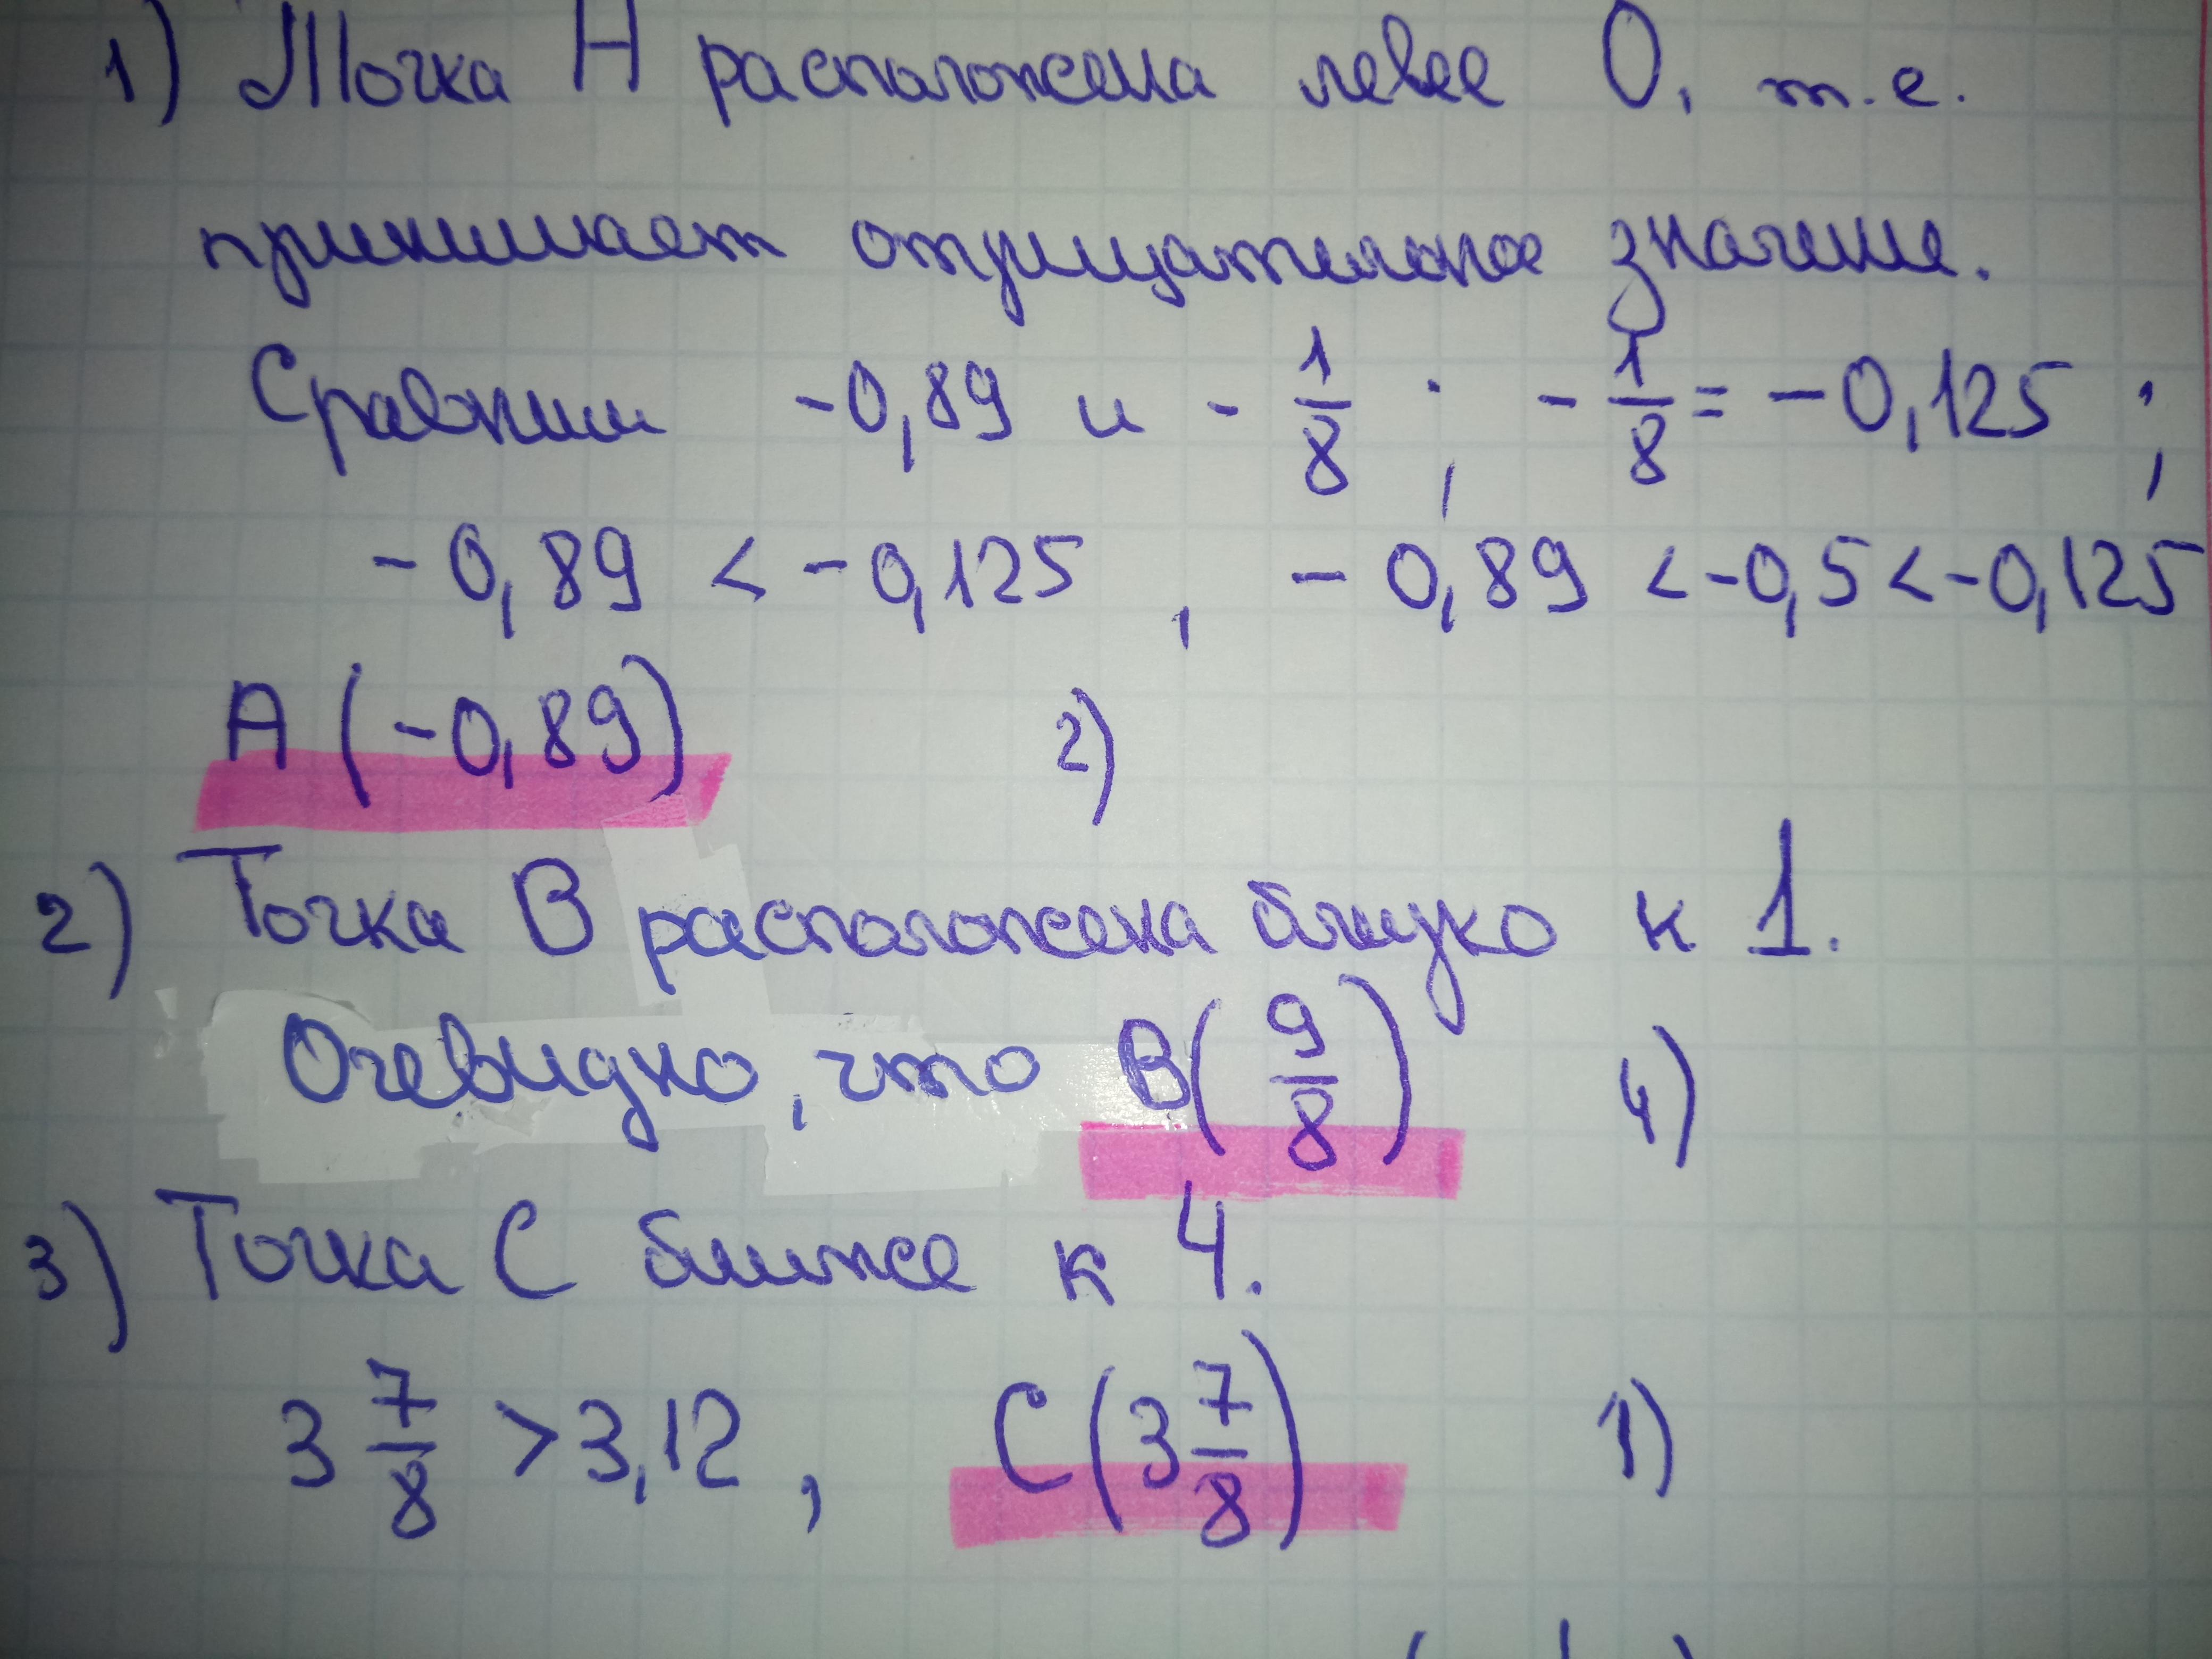 1) Точка А расположена левее 0, т.е.
принимает отрицательное значение.
Сравним -0,89 и - 1/8 ; - 1/8 = -0,125 ;
-0,89 < -0,125 , -0,89 < -0,5 < -0,125
А (-0,89) 2)
2) Точка В расположена близко к 1.
Очевидно, что В(9/8) 4)
3) Точка С ближе к 4.
3 7/8 > 3,12 , С(3 7/8) 1)